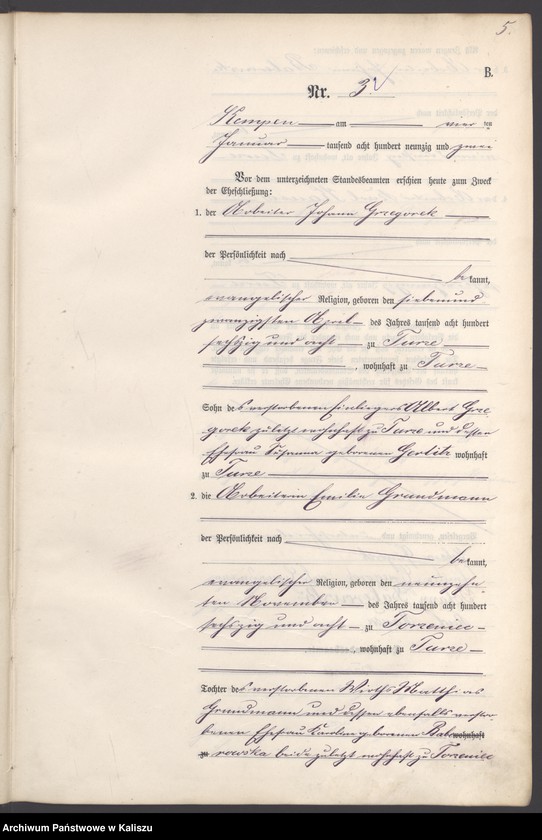 5.
B.
Nr. 3.
Kempen am vier ten
Januar tausend acht hundert neunzig und zwei
Vor dem unterzeichneten Standesbeamten erschien heute zum Zweck
der Eheschließung:
1. der Arbeiter Johann Grzegorek
der Persönlichkeit nach
be kannt,
evangelischer Religion, geboren den siebenund
zwanzigsten April des Jahres tausend acht hundert
sechzig und acht zu Turze
, wohnhaft zu Turze
Sohn des verstorbenen Einliegers Albert Grze
gorek zuletzt wohnhaft zu Turze und dessen
Ehefrau Susanna geborenen Gerlitz wohnhaft
zu Turze
2. die Arbeiterin Emilie Grundmann
der Persönlichkeit nach
be kannt,
evangelischer Religion, geboren den neunzehn
ten November des Jahres tausend acht hundert
sechszig und acht zu Torzeniec
, wohnhaft zu Turze
Tochter des verstorbenen Wirths Matthias
Grundmann und dessen ebenfalls verstor
benen Ehefrau geborenen wohnhaft
zu rowska beide zuletzt wohnhaft zu Torzeniec
Archiwum Państwowe w Kaliszu